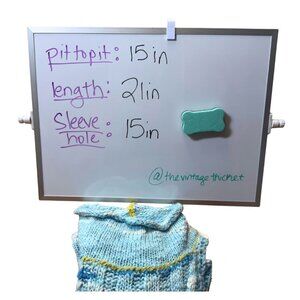 pit to pit: 15in
length: 21in
Sleeve
hole: 15in
@thevintagethicket